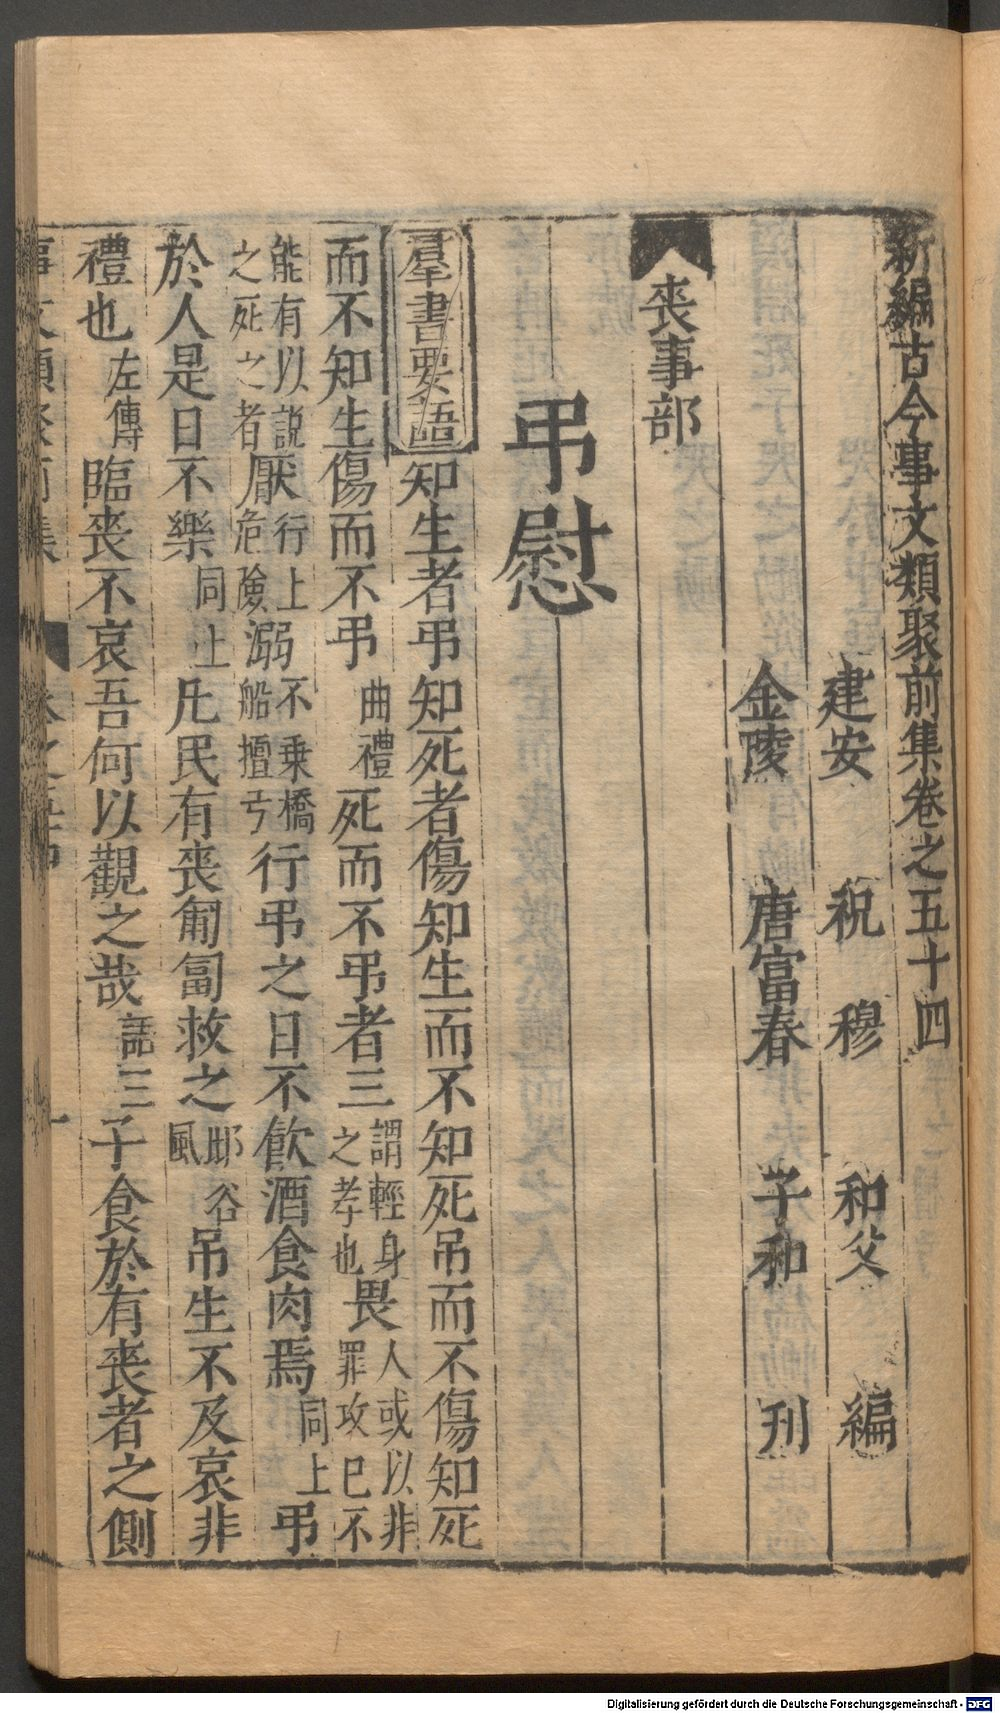 新編古今事文類聚前集卷之五十四
建安 祝 穆 和父 編
金陵 唐富春 子和 刊
喪事部
弔慰
羣書要語 知生者弔知死者傷知生而不知死吊而不傷知死
而不知生傷而不弔 曲禮 死而不弔者三 謂輕身之孝也 畏 人或以非罪攻已不
能有以說之死之者 厭 行上危險 溺 不乘橋船擅亏 行弔之日不飲酒食肉焉 同上 弔
於人是日不樂 同上 凡民有喪匍匐救之 邶谷風 吊生不及哀非
禮也 左傳 臨喪不哀吾何以觀之哉 語三 子食於有喪者之側
Digitalisierung gefördert durch die Deutsche Forschungsgemeinschaft - DFG